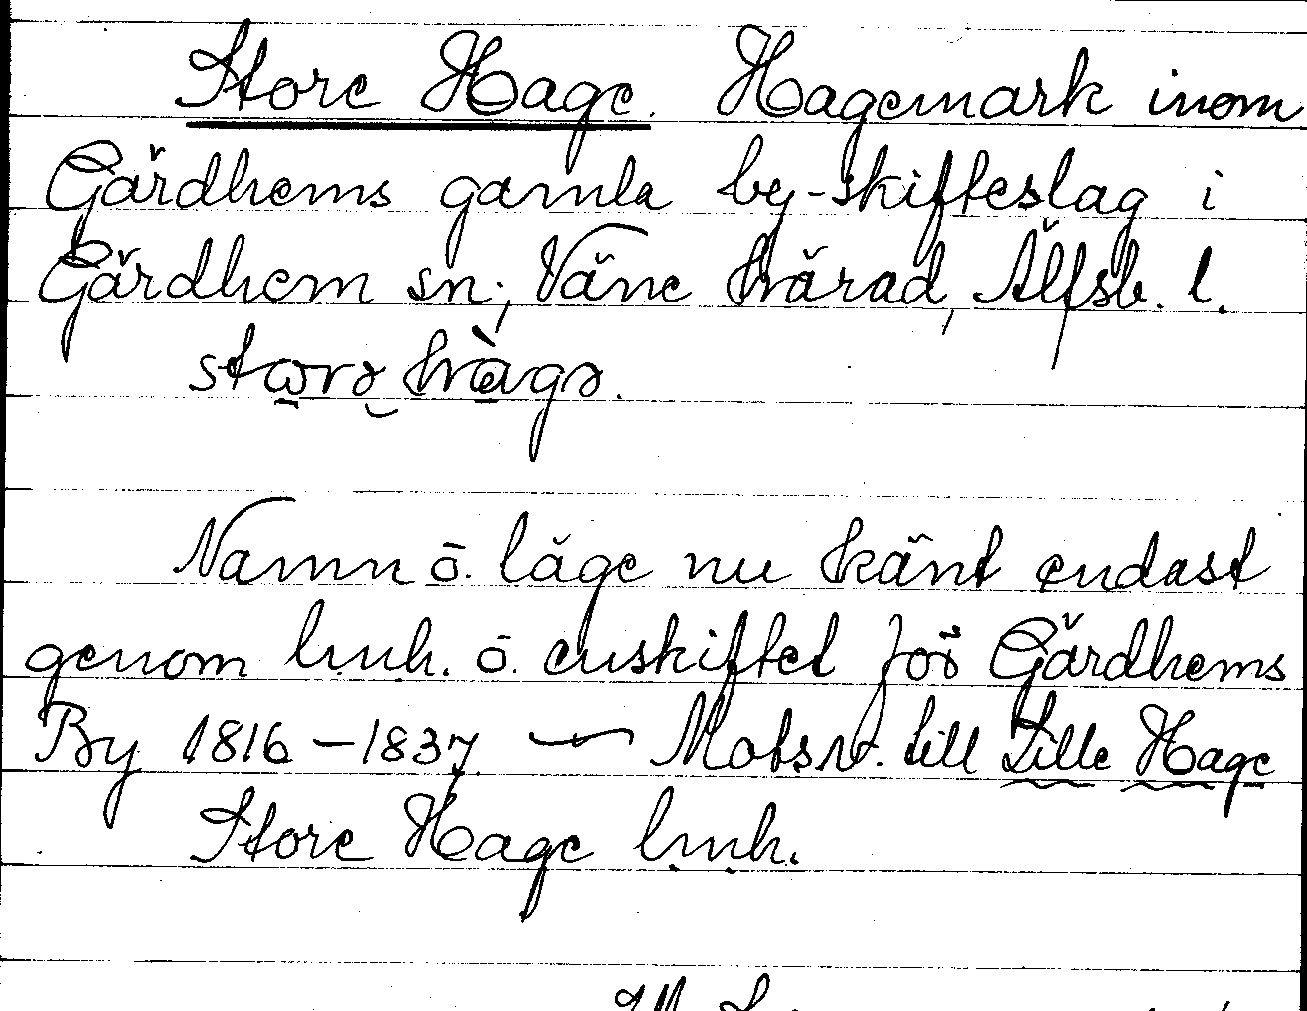 Store Hage. Hagemark inom
Gärdhems gamla by-skifteslag i
Gärdhem sn; Väne härad, Älfsb. l.
storə hàgə.
Namn ō. läge nu känt endast
genom lmh. ō. enskiftet för Gärdhems
By 1816–1837. — Motsv. till Lille Hage
Store Hage lmh.